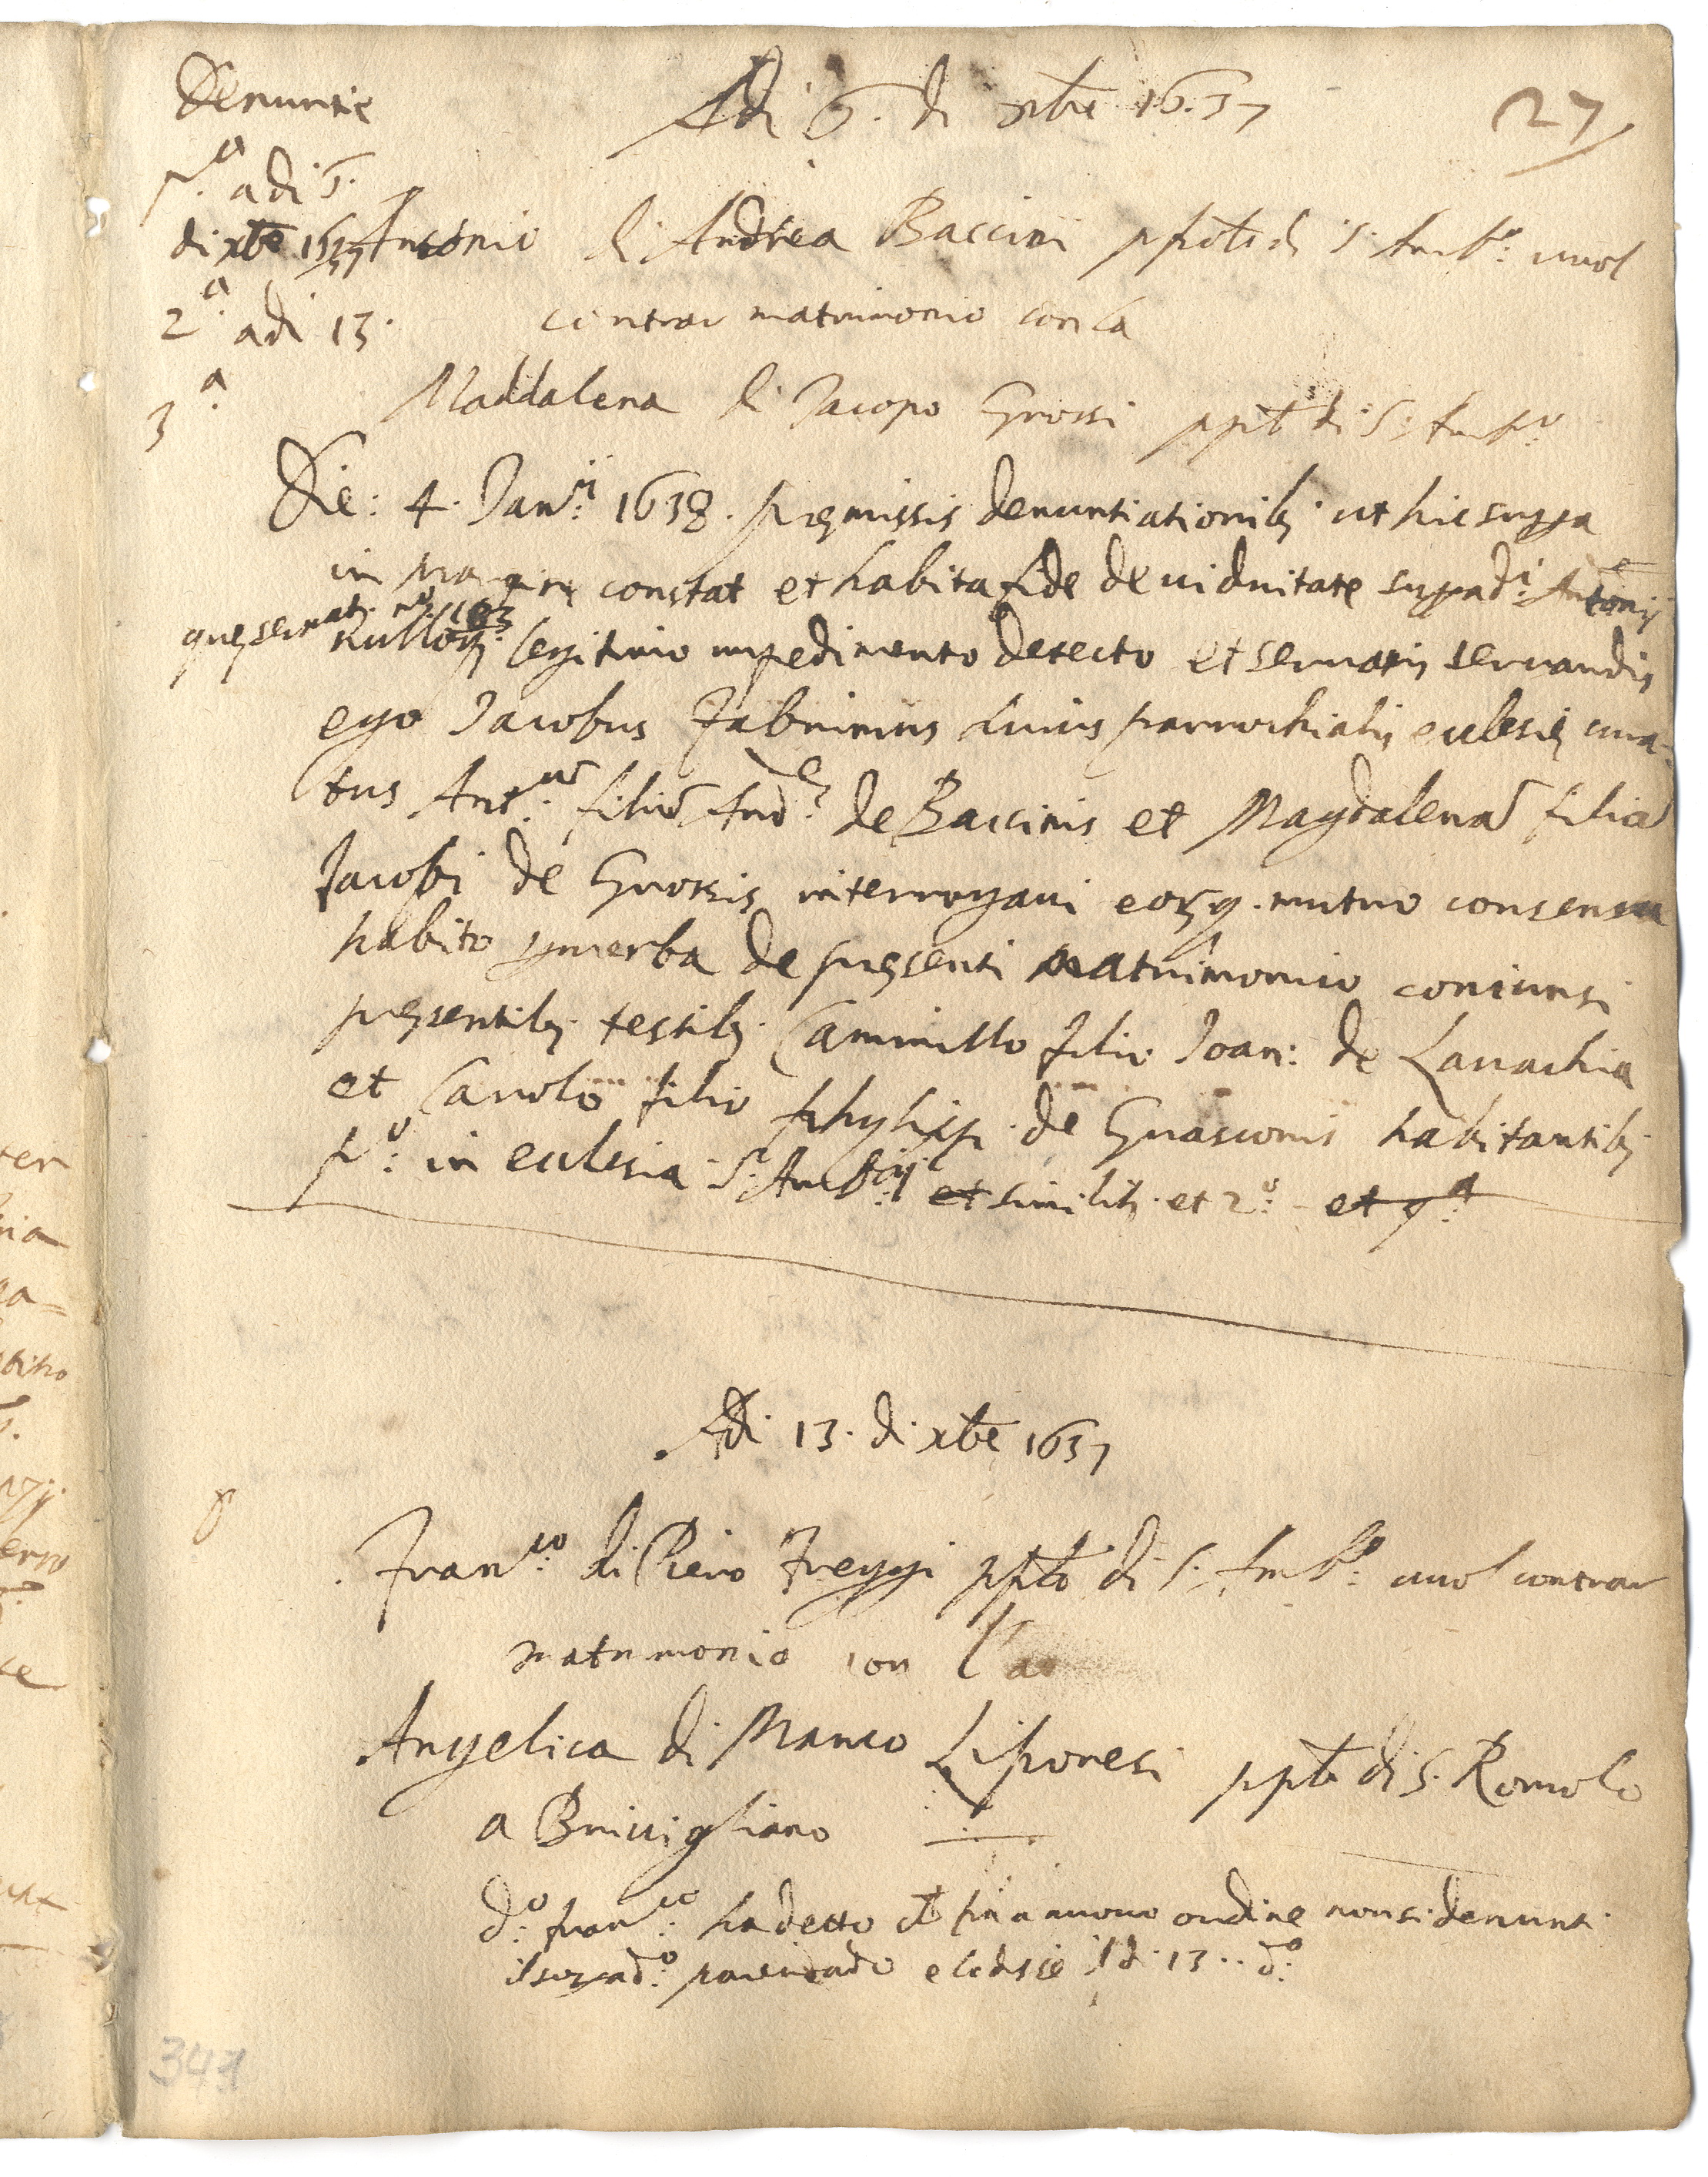 Denuntie
Adi 6. di xbre 1637
27
1.a adi 6.
di xbre 1637 Antonio di Andrea Baccini ppto di S. Amb.o vuol
2.a adi 13. contrar matrimonio con la
3.a Maddalena di Jacopo Grossi ppto di S. Amb.o
Die: 4. Jan.ii 1638. premissis denuntiationib; ut hic supra
in margine constat et habita fide de viduitate suprad.i Antonij
que servatur n.o 103
nulloq; legitimo impedimento detecto et servatis servandis
ego Jacobus Fabrinius huius parrochialis eclesie cura-
tus Ant.um filiū And.e de Baccinis et Magdalenā filiā
Jacobi de Grossis interrogavi eorq. mutuo consensu
habito p verba de presenti matrimonio coniunsi
presentib; testib; Cammillo filio Joan: de Lavachia
et Carolo filio phylipp. de Guasconis habitantib;
p.o: in eclesia S. Amb.ij et similit; et 2.o: et q.a
Adi 13. di xbre 1637
Fran.co: di Piero Freggi ppto di S. Amb.o: vuol contrar
matrimonio con l'
Angelica di Marco Liponesi ppto di S. Romolo
a Bricigliano
d.o: fran.co: ha detto ch fin a nuovo ordine non si denunti
il suprad.o parentado eclesie Adi 13.. d.o:
341